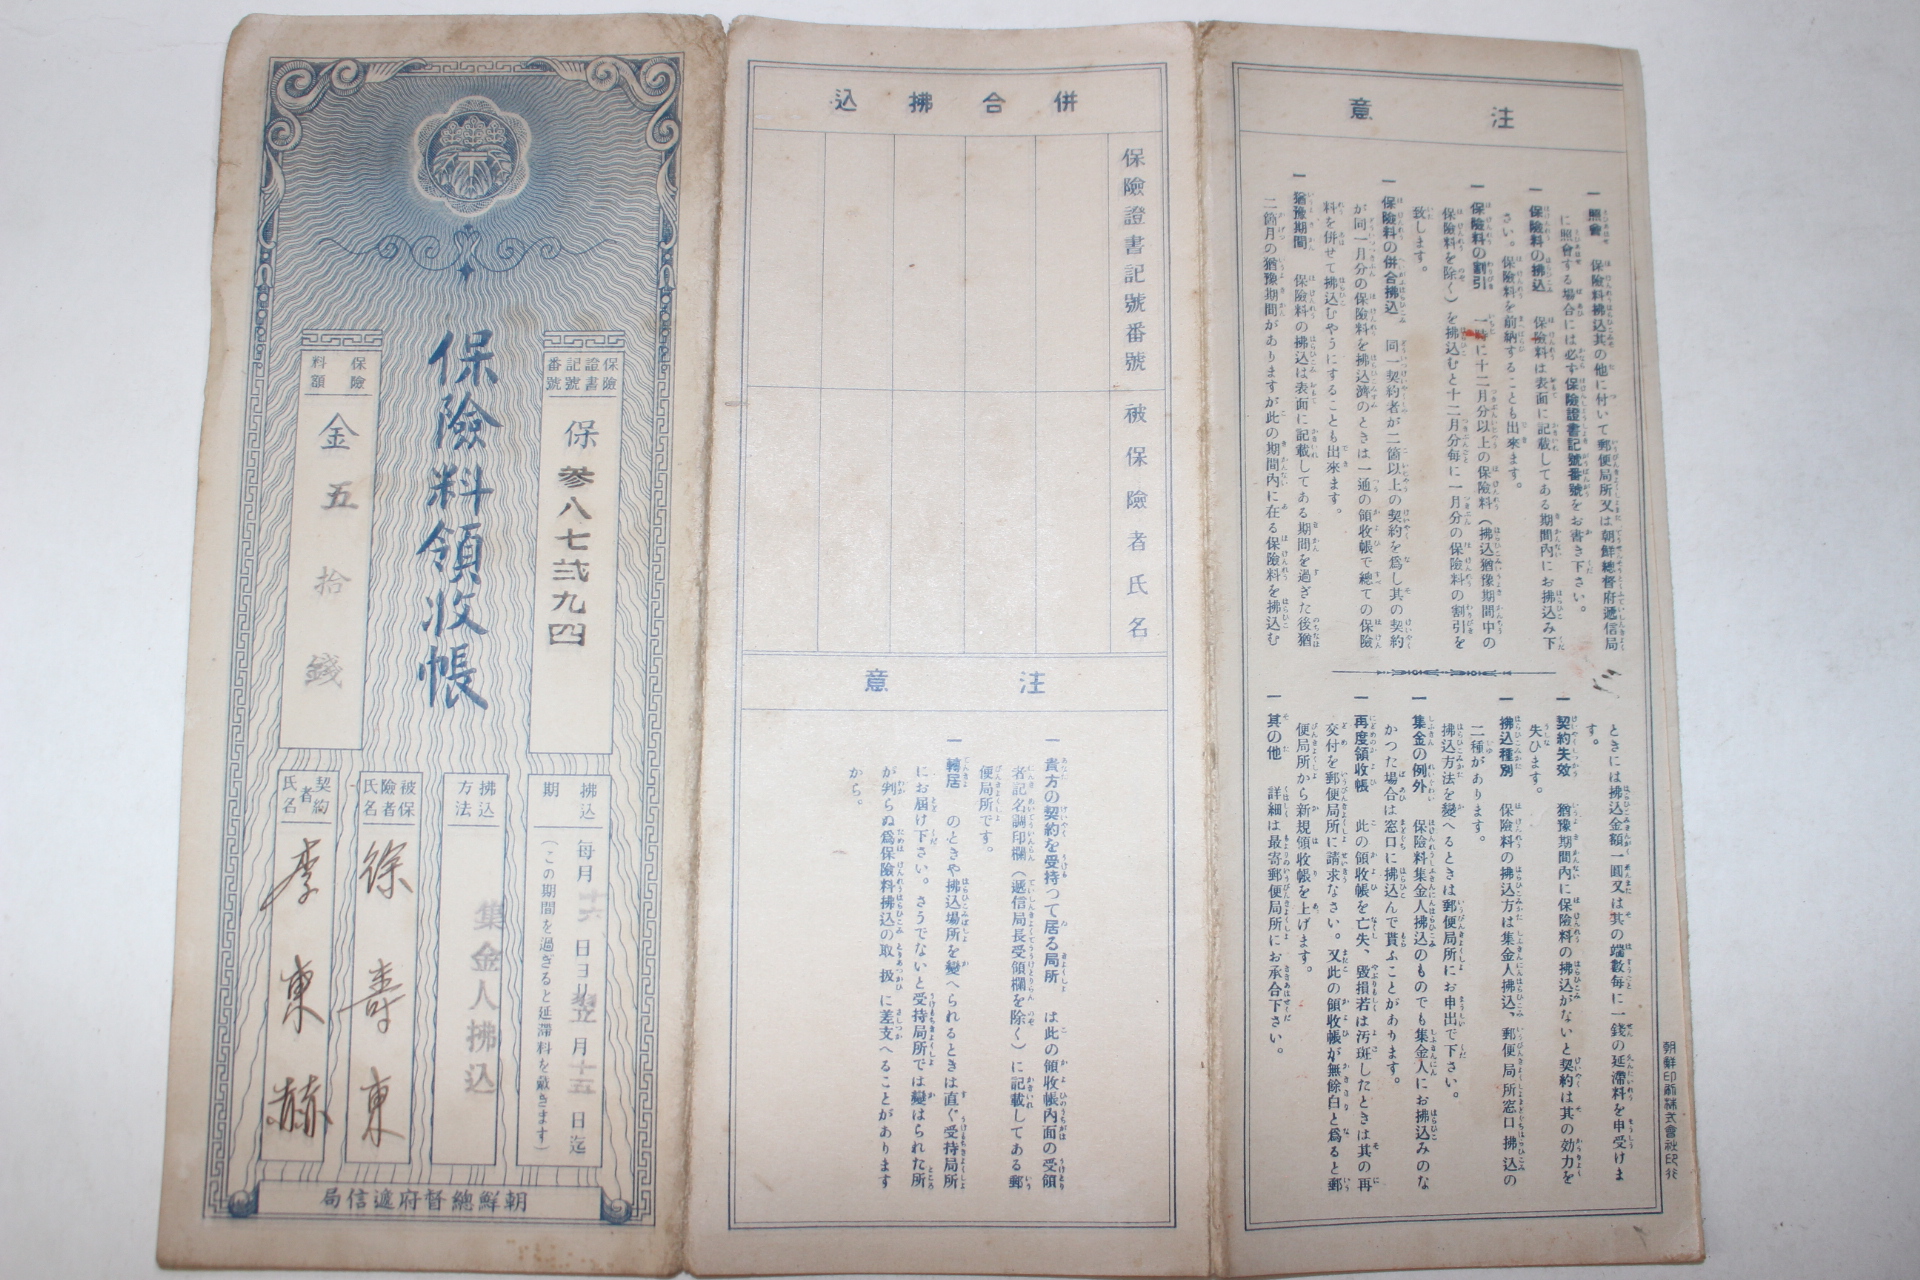 保險料領收帳
保險證書記號番號
保參八七弐九四
保險料額
金五拾錢
拂込期
每月十六日ヨリ翌月十五日迄
(この期間を過ぎると延滯料を戴きます)
拂込方法
集金人拂込
被保險者氏名
徐壽東
契約者氏名
李東赫
朝鮮總督府遞信局
併合拂込
保險證書記號番號
被保險者氏名
注意
一 貴方の契約を受持つて居る局所 は此の領收帳內面の受領
者記名調印欄(遞信局長受領欄を除く)に記載してある郵
便局所です。
一 轉居 のときや拂込場所を變へられるときは直ぐ受持局所
にお屆け下さい。さうでないと受持局所では變はられた所
が判らぬ爲保險料拂込の取扱に差支へることがあります
から。
注意
一 照會 保險料拂込其の他に付いて郵便局所又は朝鮮總督府遞信局
に照會する場合には必ず保險證書記號番號をお書き下さい。
一 保險料の拂込 保險料は表面に記載してある期間內にお拂込み下
さい。保險料を前納することも出來ます。
一 保險料の割引 一時に十二月分以上の保險料(拂込猶豫期間中の
保險料を除く)を拂込むと十二月分每に一月分の保險料の割引を
致します。
一 保險料の併合拂込 同一契約者が二箇以上の契約を爲し其の契約
が同一月分の保險料を拂込濟のときは一通の領收帳で總ての保險
料を併せて拂込むやうにすることも出來ます。
一 猶豫期間 保險料の拂込は表面に記載してある期間を過ぎた後猶
二箇月の猶豫期間がありますが此の期間內に在る保險料を拂込む
ときには拂込金額一圓又は其の端數每に一錢の延滯料を申受けま
す。
一 契約失效 猶豫期間內に保險料の拂込がないと契約は其の効力を
失ひます。
一 拂込種別 保險料の拂込方は集金人拂込、郵便局所窓口拂込の
二種があります。
拂込方法を變へるときは郵便局所にお申出で下さい。
一 集金の例外 保險料集金人拂込のものでも集金人にお拂込みのな
かつた場合は窓口に拂込んで貰ふことがあります。
一 再度領收帳 此の領收帳を亡失、毀損若は汚斑したときは其の再
交付を郵便局所に請求なさい。又此の領收帳が無餘白と爲ると郵
便局所から新規領收帳を上げます。
一 其の他 詳細は最寄郵便局所にお承合下さい。
朝鮮印刷株式會社印行